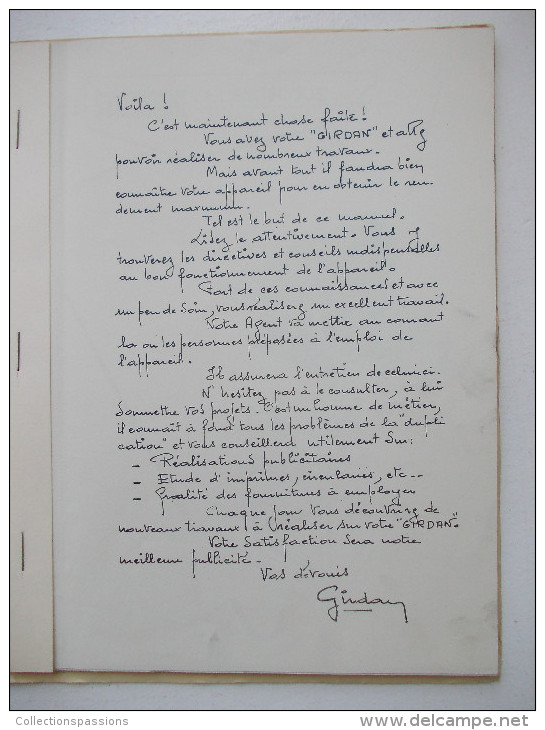 Voila !
C'est maintenant chose faite !
Vous avez votre "GIRDAN" et allez
pouvoir réaliser de nombreux travaux.
Mais avant tout il faudra bien
connaître votre appareil pour en obtenir le ren-
dement maximum.
Tel est le but de ce manuel.
Lisez le attentivement. Vous y
trouverez les directives et conseils indispensables
au bon fonctionnement de l'appareil.
Fort de ces connaissances et avec
un peu de soin, vous réaliserez un excellent travail.
Votre Agent va mettre au courant
la ou les personnes préposées à l'emploi de
l'appareil.
Il assurera l'entretien de celui-ci.
N'hésitez pas à le consulter, à lui
soumettre vos projets. C'est un homme de métier,
il connaît à fond tous les problèmes de la "dupli
cation" et vous conseillera utilement sur :
- Réalisations publicitaires
- Etude d'imprimés, circulaires, etc--
- Qualité des fournitures à employer
Chaque jour vous découvrirez de
nouveaux travaux à réaliser sur votre "GIRDAN".
Votre satisfaction sera notre
meilleure publicité.
Vos dévoués
Girdan
Collectionspassions
www.delcampe.net